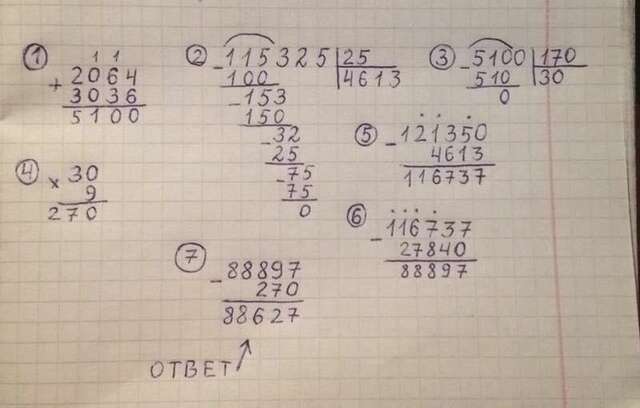 ① 1 1
+ 2064
3036
5100
② - 115325 | 25
100 4613
- 153
150
- 32
25
- 75
75
0
③ - 5100 | 170
510 30
0
④ × 30
9
270
⑤ - 121350
4613
116737
⑥ - 116737
27840
88897
⑦ - 88897
270
88627
ОТВЕТ